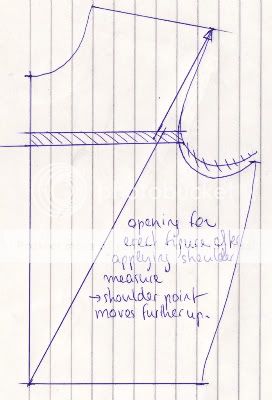 photobucket
opening for
erect figure after
applying shoulder
measure
→ shoulder point
moves further up.